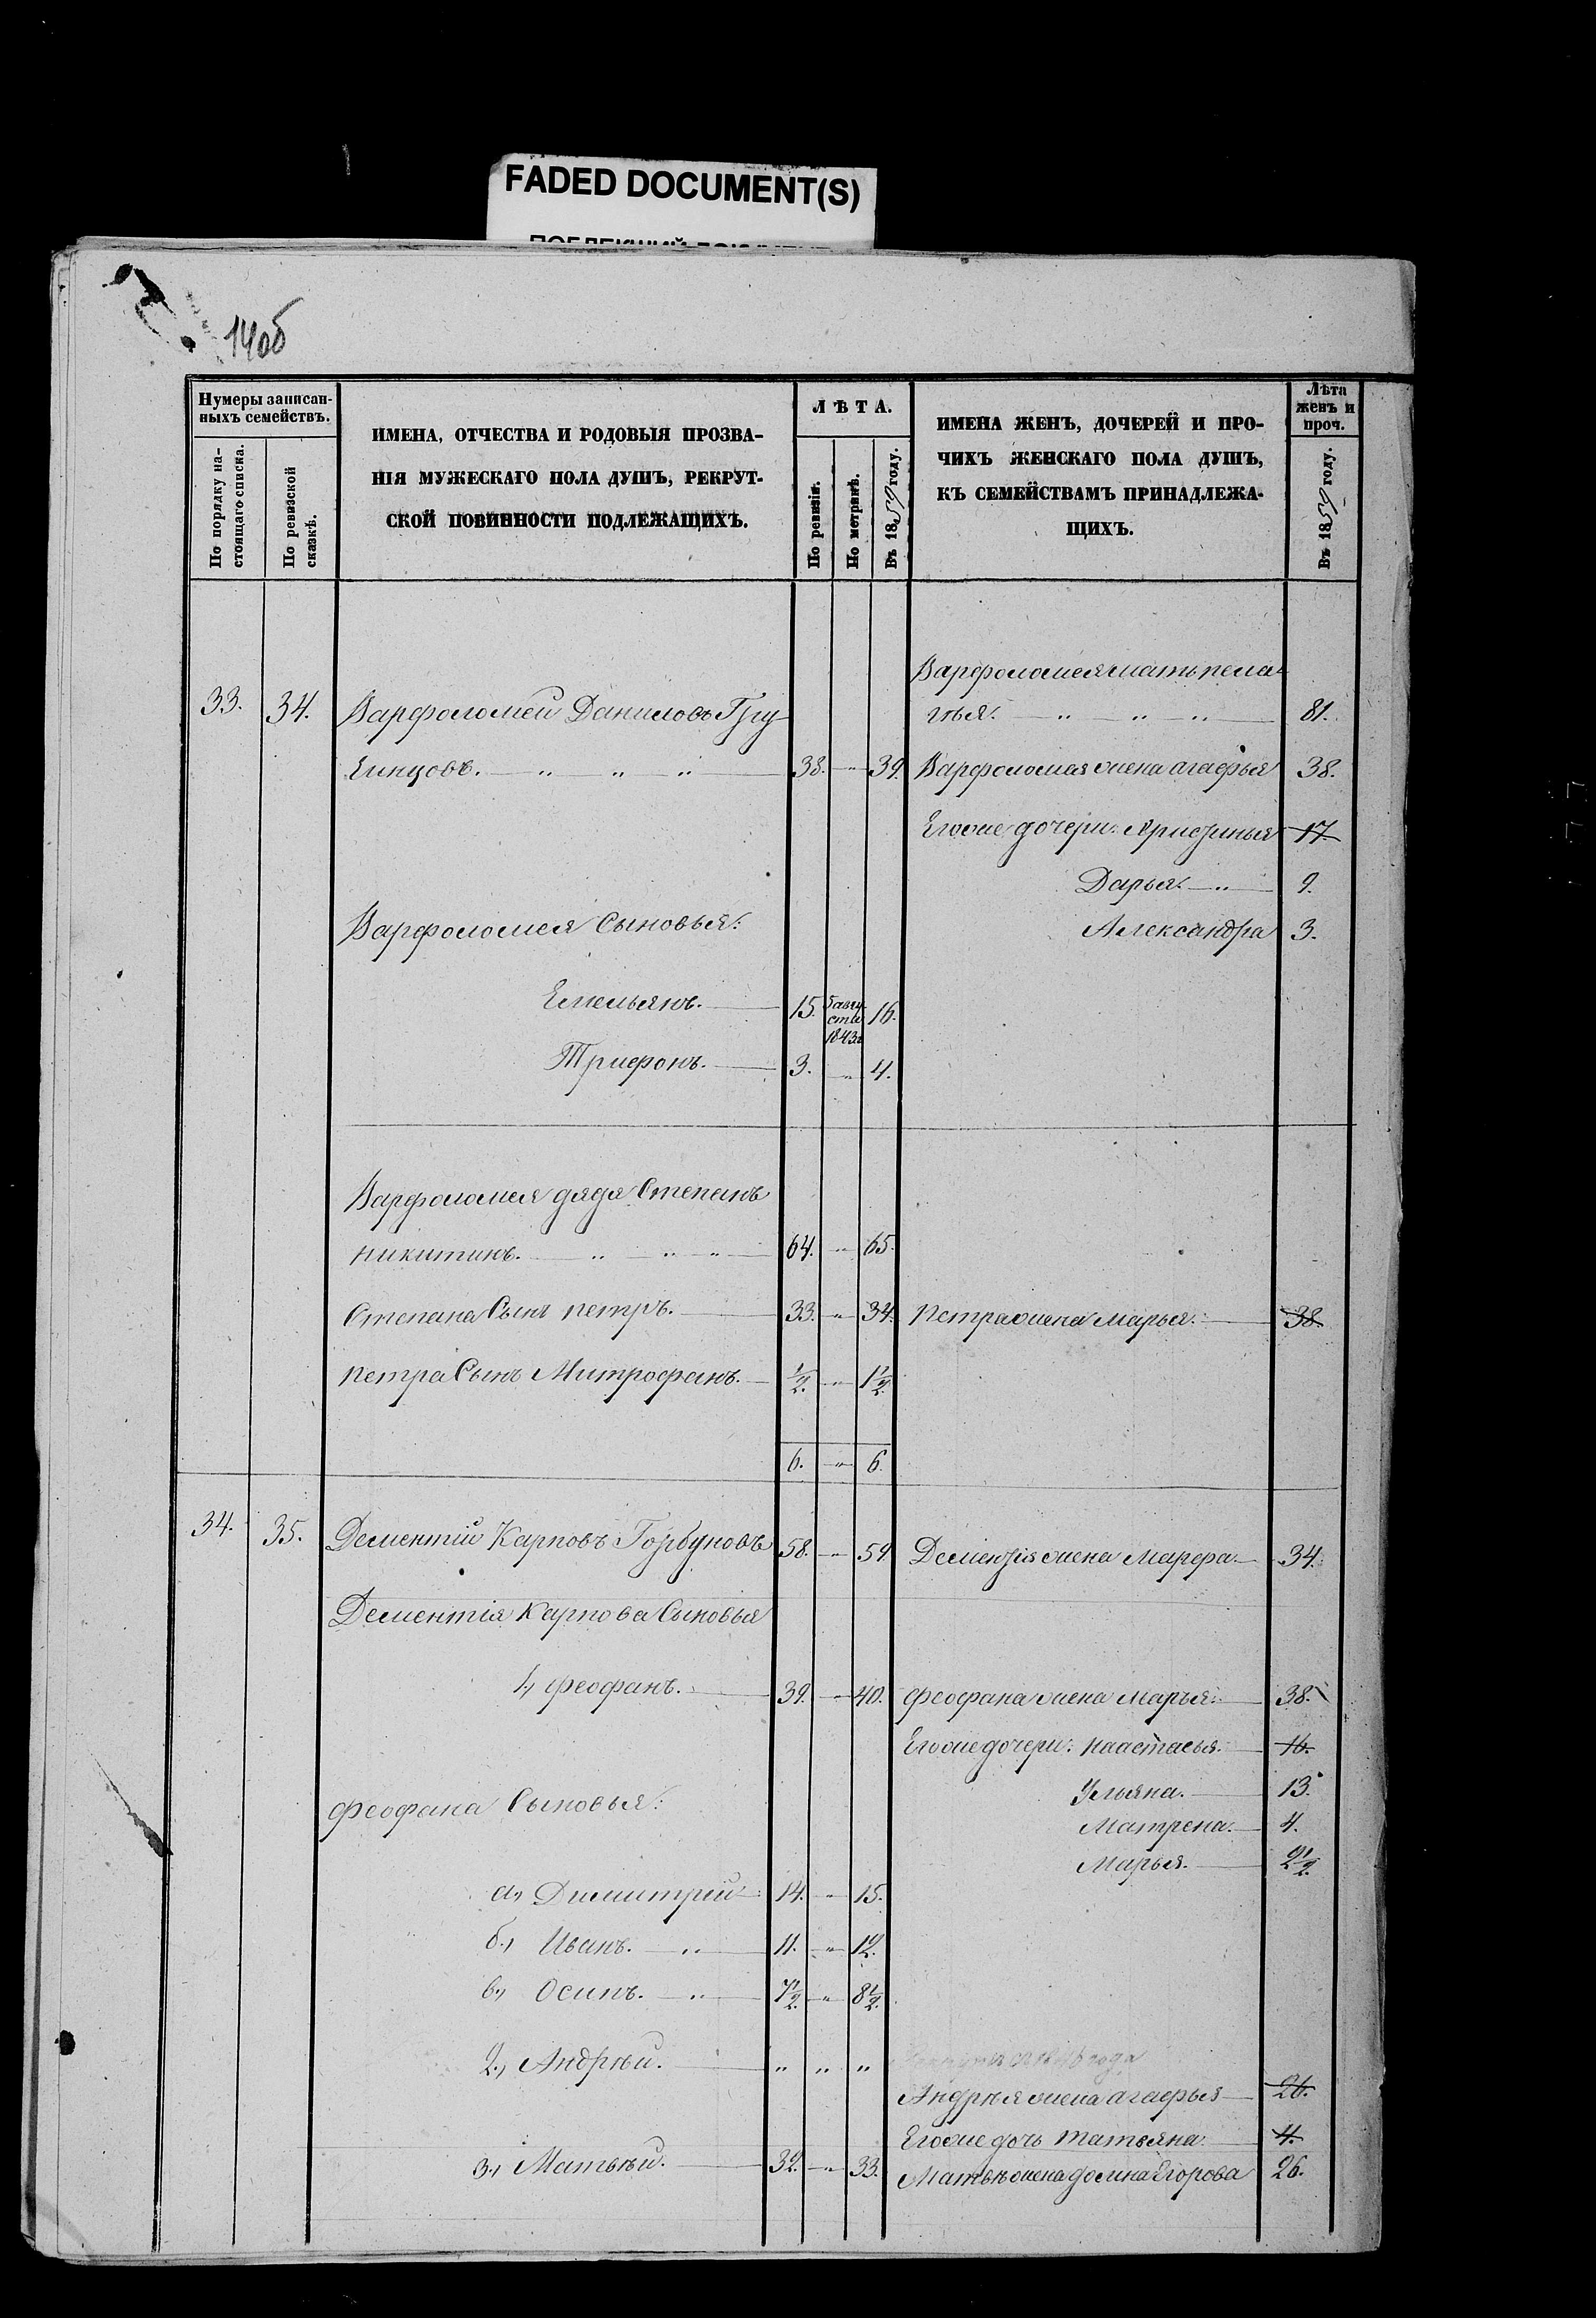 FADED DOCUMENT(S)
14об
Нумеры записан-
ныхъ семействъ.
По порядку на-
стоящаго списка.
По ревизской
сказкѣ.
ИМЕНА, ОТЧЕСТВА И РОДОВЫЯ ПРОЗВА-
НІЯ МУЖЕСКАГО ПОЛА ДУШЪ, РЕКРУТ-
СКОЙ ПОВИННОСТИ ПОДЛЕЖАЩИХЪ.
ЛѢТА.
По ревизіи.
По метрикѣ.
Въ 1859 году.
ИМЕНА ЖЕНЪ, ДОЧЕРЕЙ И ПРО-
ЧИХЪ ЖЕНСКАГО ПОЛА ДУШЪ,
КЪ СЕМЕЙСТВАМЪ ПРИНАДЛЕЖА-
ЩИХЪ.
Лѣта
женъ и
проч.
Въ 1859 году.
Варфоломея мать пела-
33. 34. Варфоломей Даниловъ гѣя. " " " 81.
" " " 38. " 39. Варфоломея жена агафья 38.
Его же дочери: 17.
Дарья. " 9.
Варфоломея Сыновья: Александра 3.
Емельянъ. 15. 5 авгу-
ста
1843г 16.
Трифонъ. 3. " 4.
Варфоломея дядя Степанъ
никитинъ. " " " 64. " 65.
Степана Сынъ петръ. 33. " 34. петра жена марья. 38.
петра Сынъ Митрофанъ. ½. " 1½.
6. " 6.
34. 35. Дементий Карповъ Горбуновъ 58. " 59. Дементія жена марфа. 34.
Дементія карпова Сыновья
1, феофанъ. 39. " 40. феофана жена марья. 38.
Его же дочери: настасья. 16.
Ульяна. 13.
феофана Сыновья: матрена. 4.
марья. 2½.
а, Димитрій 14. " 15.
б, Иванъ. " 11. " 12.
в, Осипъ. " 7½. " 8½.
2, Андрѣй. " " "
Андрѣя жена агафья 26.
Его же дочь татьяна. 4.
3, Матвѣй. 32. " 33. Матвѣя жена домна Егорова 26.